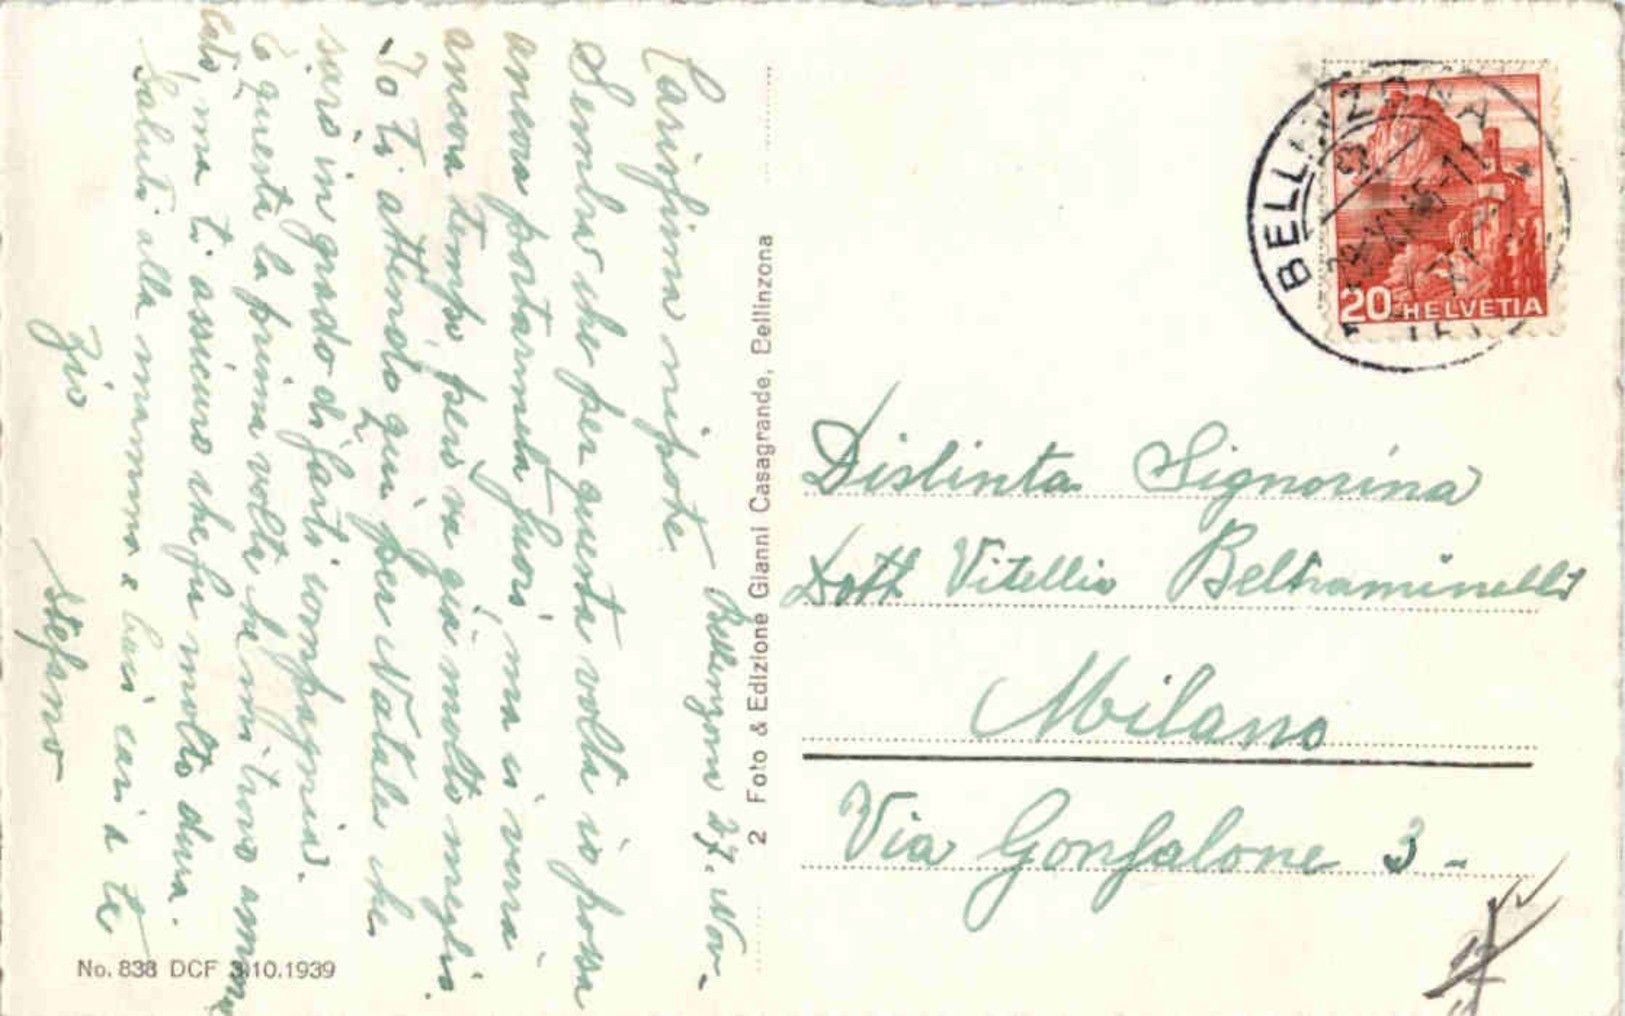 Bellinzona 27. Nov-
Carissima nipote.
Sembra che per questa volta io possa
ancora portarmela fuori, ma ci vorrà
ancora tempo, però va già molto meglio.
Io ti attendo qui per Natale che
sarò in grado di farti compagnia.
È questa la prima volta che mi trovo amma-
lato, ma ti assicuro che fu molto dura.
Saluti alla mamma e baci cari a te
Zio
Stefano
2 Foto & Edizione Gianni Casagrande, Bellinzona
No. 838 DCF 3.10.1939
BELLINZONA
20 HELVETIA
Distinta Signorina
Dott Vitellia Beltraminelli
Milano
Via Gonfalone 3 -